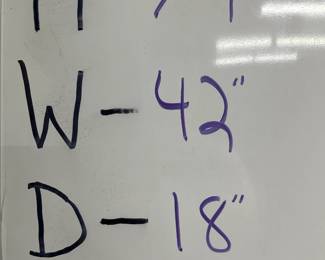 W - 42"
D - 18"